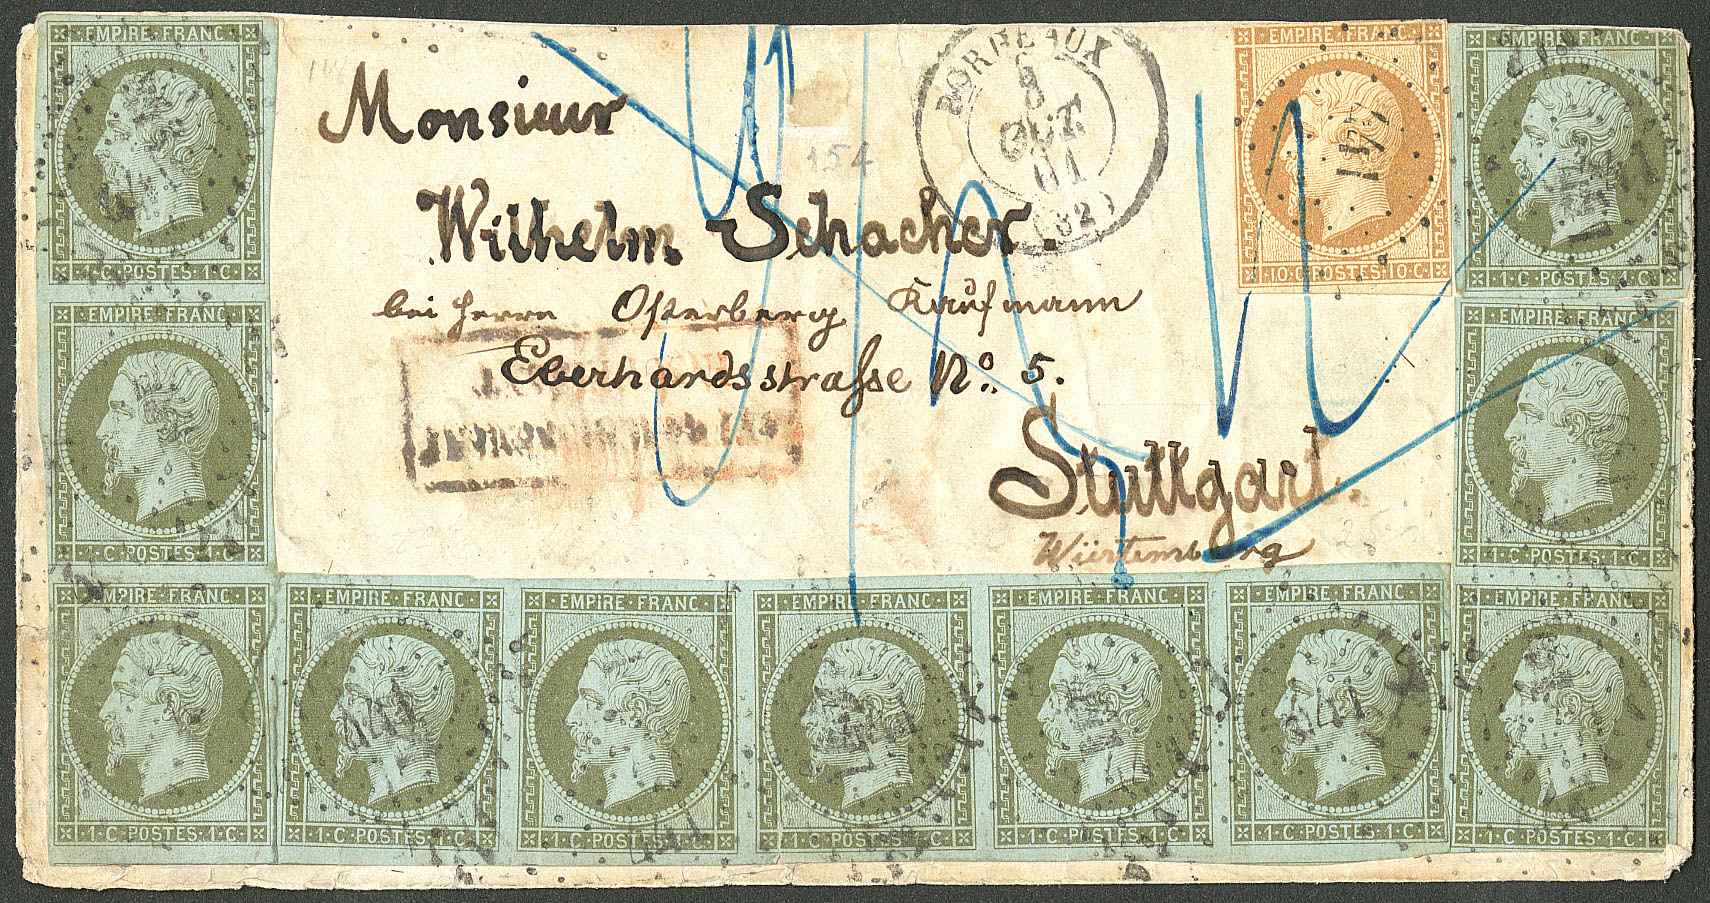 EMPIRE · FRANC ·
1 · C · POSTES · 1 · C ·
EMPIRE · FRANC ·
1 · C · POSTES · 1 · C ·
BORDEAUX
8
OCT.
61
(32)
EMPIRE · FRANC ·
10 · C · POSTES · 10 · C ·
441
EMPIRE · FRANC ·
1 · C · POSTES · 1 · C ·
EMPIRE · FRANC ·
1 · C · POSTES · 1 · C ·
154
Monsieur
Wilhelm Schacher.
bei Herrn Osterberg Kaufmann
Eberhardsstrasse No. 5.
Stuttgart.
Würtemberg
EMPIRE · FRANC · EMPIRE · FRANC · EMPIRE · FRANC · EMPIRE · FRANC · EMPIRE · FRANC · EMPIRE · FRANC · EMPIRE · FRANC ·
441 441
1 · C · POSTES · 1 · C · 1 · C · POSTES · 1 · C · 1 · C · POSTES · 1 · C · 1 · C · POSTES · 1 · C · 1 · C · POSTES · 1 · C · 1 · C · POSTES · 1 · C · 1 · C · POSTES · 1 · C ·